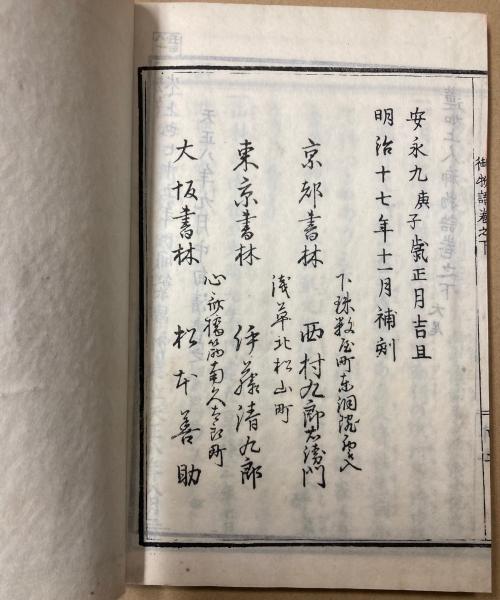 御物語卷之下
安永九庚子歳正月吉旦
明治十七年十一月補刻
下珠数屋町東洞院西入
京都書林 西村九郎右衛門
浅草北松山町
東京書林 伊藤清九郎
心斎橋筋南久太郎町
大坂書林 松本善助